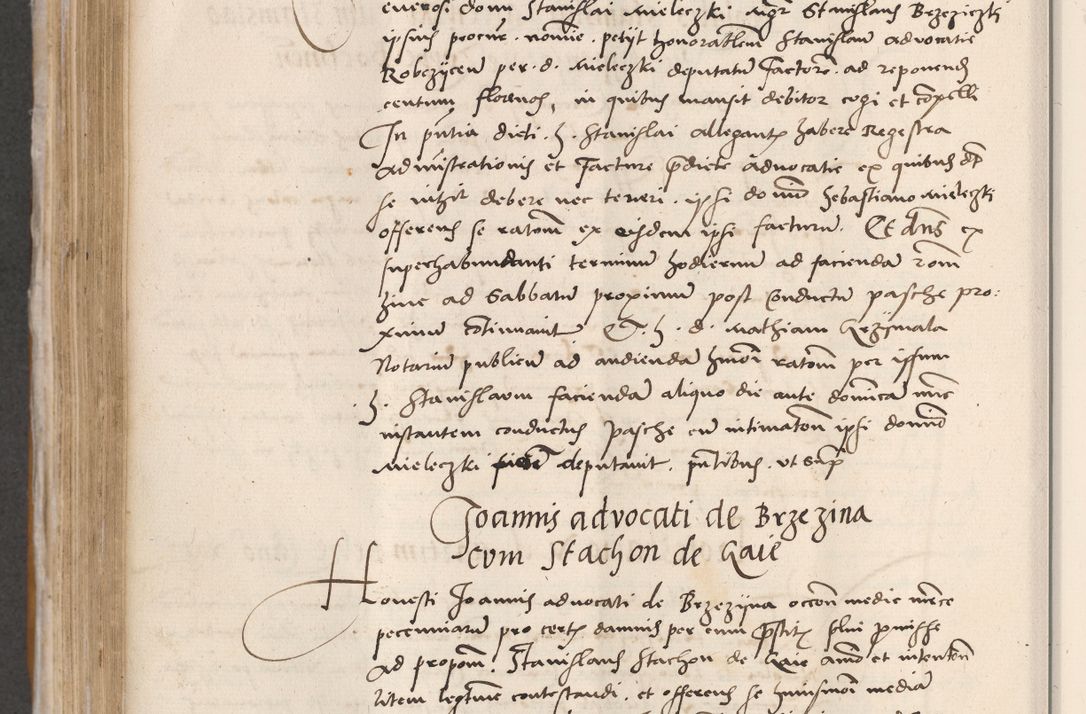 generosi domini Stanislai Mieleczki mgr Stanislaus Brzeziczki
ipsius procur. nomie. petyt honorablem Stanislaum advocatie
Kobczycen per. d. Mieleczki deputatum factore. ad reponend
centum florenos, in quibus mansit debitor cogi et compelli
In pntia dicti. h. Stanislai allegantis habere Regestra
administrationis et facture predicte advocatie ex quibus
se debere nec teneri. ipsi domino Sebastiano Mieleczki
offerens se rationem ex eisdem ipsi facturum. Et dns ex
superhabundanti terminum hodiernum ad facienda rationem
hinc ad Sabbatum proximum post Conductum pasche pro:
ximum continuavit Et. h. d. Mathiam Krzymala
Notarium publicum ad audienda hmoi rationem per ipsum
h. Stanislaum facienda aliquo die ante dominica
instantem conductus pasche cum intimatione ipsi domino
Mieleczki deputavit. pntibus. ut supra
Joannis advocati de Brzezina
cum Stachon de Gaie
Honesti Joannis advocati de Brzezyna occone medie
pecuniarum pro certis damnis per eum
ad propom. Stanislaus Stachon de Gaie animo et intentione
litem legitime contestandi. et offerens se huiusmoi media